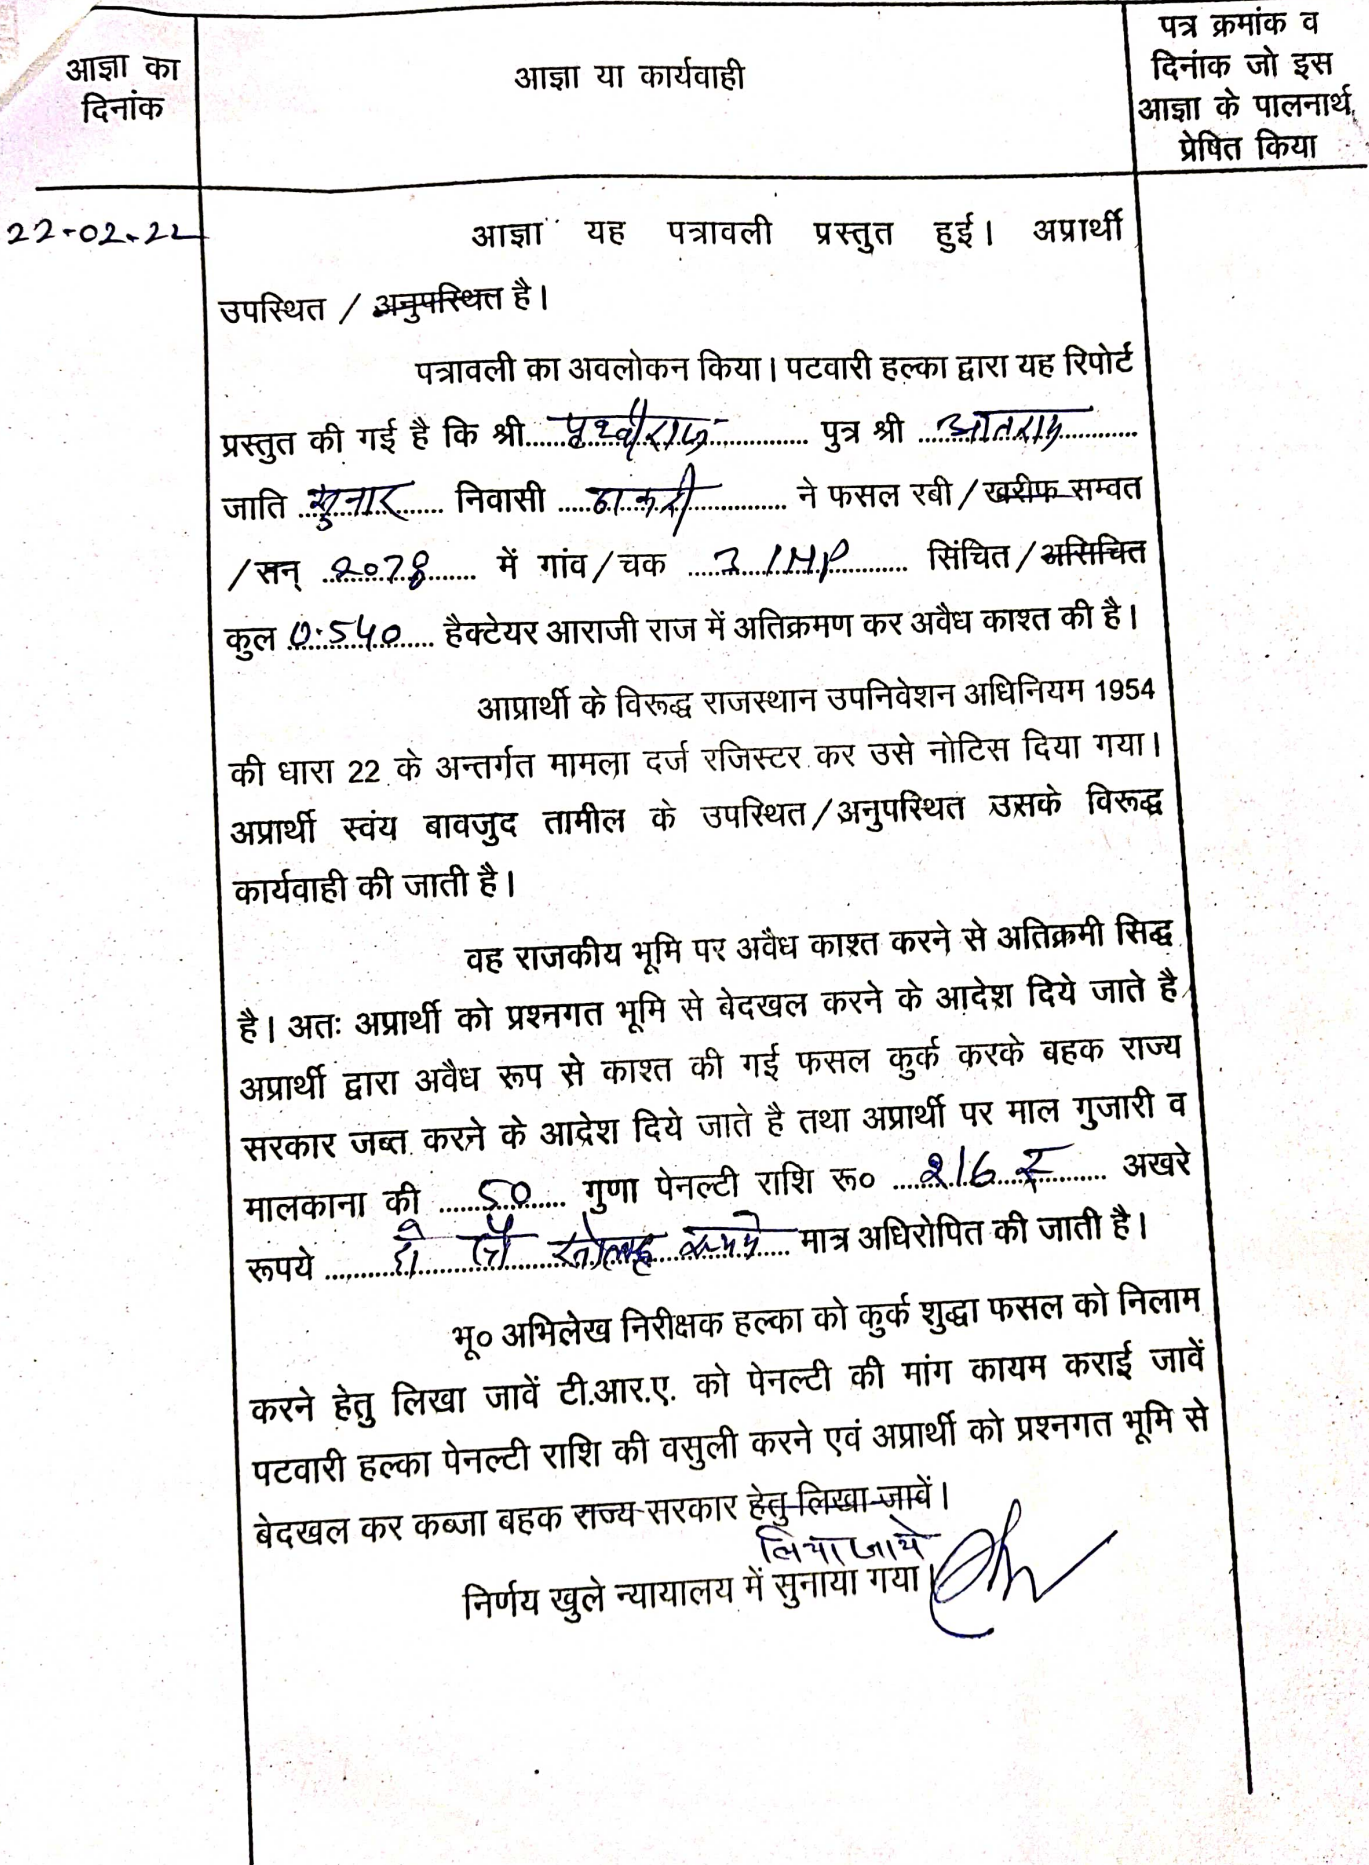 आज्ञा का
दिनांक
आज्ञा या कार्यवाही
पत्र क्रमांक व
दिनांक जो इस
आज्ञा के पालनार्थ
प्रेषित किया
22-02-22
आज्ञा यह पत्रावली प्रस्तुत हुई। अप्रार्थी
उपस्थित / अनुपस्थित है।
पत्रावली का अवलोकन किया। पटवारी हल्का द्वारा यह रिपोर्ट
प्रस्तुत की गई है कि श्री पृथ्वीराज पुत्र श्री
जाति सुनार निवासी ने फसल रबी / खरीफ सम्वत
/ सन् 2078 में गांव / चक 3 IMP सिंचित / असिचित
कुल 0.540 हैक्टेयर आराजी राज में अतिक्रमण कर अवैध काश्त की है।
आप्रार्थी के विरूद्ध राजस्थान उपनिवेशन अधिनियम 1954
की धारा 22 के अन्तर्गत मामला दर्ज रजिस्टर कर उसे नोटिस दिया गया।
अप्रार्थी स्वंय बावजुद तामील के उपस्थित / अनुपस्थित उसके विरूद्ध
कार्यवाही की जाती है।
वह राजकीय भूमि पर अवैध काश्त करने से अतिक्रमी सिद्ध
है। अतः अप्रार्थी को प्रश्नगत भूमि से बेदखल करने के आदेश दिये जाते है
अप्रार्थी द्वारा अवैध रूप से काश्त की गई फसल कुर्क करके बहक राज्य
सरकार जब्त करने के आदेश दिये जाते है तथा अप्रार्थी पर माल गुजारी व
मालकाना की 50 गुणा पेनल्टी राशि रू० 216 रु अखरे
रूपये दो सौ सोलह रूपये मात्र अधिरोपित की जाती है।
भू० अभिलेख निरीक्षक हल्का को कुर्क शुद्धा फसल को निलाम
करने हेतु लिखा जावें टी.आर.ए. को पेनल्टी की मांग कायम कराई जावें
पटवारी हल्का पेनल्टी राशि की वसुली करने एवं अप्रार्थी को प्रश्नगत भूमि से
बेदखल कर कब्जा बहक राज्य सरकार हेतु लिखा जावें।
लिया जाये
निर्णय खुले न्यायालय में सुनाया गया।